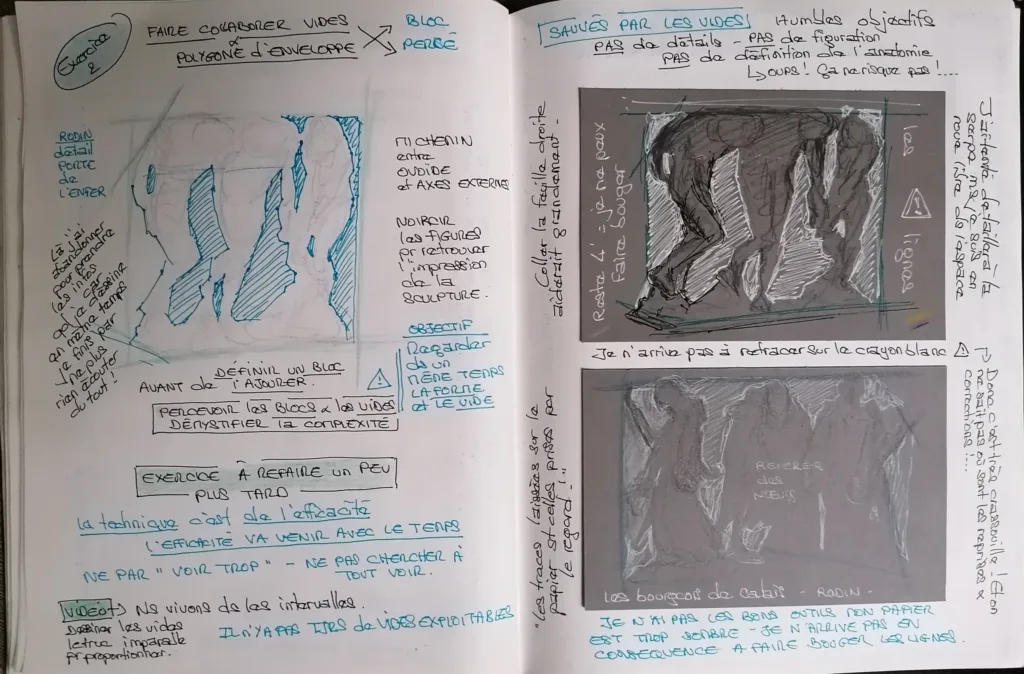 Exercice 2
FAIRE COLLABORER VIDES
&
POLYGONE D'ENVELOPPE
BLOC
PERRÉ
RODIN
détail
PORTE
de
L'ENFER
MICHENIN
entre
OVOÏDE
et AXES EXTERNES
NOIRCIR
les FIGURES
pr retrouver
l'impression
de la
SCULPTURE.
Là j'ai
abandonné
pour prendre
les infos
car
en même temps
je finis par
ne plus
rien écouter
du tout !
OBJECTIF
Regarder
de un
MÊME TEMPS
LA FORME
et LE VIDE
DÉFINIR UN BLOC
AVANT de L'AJOURER.
PERCEVOIR les BLOCS & les VIDES
DÉMYSTIFIER la COMPLEXITÉ
EXERCICE À REFAIRE UN PEU
PLUS TARD
la technique c'est de l'efficacité
L'EFFICACITÉ VA VENIR AVEC LE TEMPS
NE PAR "VOIR TROP" - NE PAS CHERCHER À
TOUT VOIR.
VIDÉO → Ns vivons de les intervalles.
Dessiner les vides
le truc imparable
pr proportionner.
IL N'Y A PAS TJRS de VIDES EXPLOITABLES
SAUVÉS PAR LES VIDES !
Humbles objectifs
PAS de détails - PAS de figuration
PAS de définition de l'anatomie
↳ OUPS ! ça ne risque pas !....
Coller la feuille droite
aiderait grandement.
Reste 4' = je ne peux
faire bouger
les lignes
J'ai tenté de tailler à la
serpe, ms je suis en
roue libre de l'espace
Je n'arrive pas à retracer sur le crayon blanc
→ Donc c'est très crassouille ! Et on
ne sait pas où sont les reprises &
corrections !...
"les traces laissées sur le
papier st celles prises par
le regard !"
REPÉRER
des
NŒUDS
les bourgeois de Calais - RODIN -
JE N'AI PAS LES BONS OUTILS MON PAPIER
EST TROP SOMBRE - JE N'ARRIVE PAS EN
CONSÉQUENCE A FAIRE BOUGER LES LIGNES.